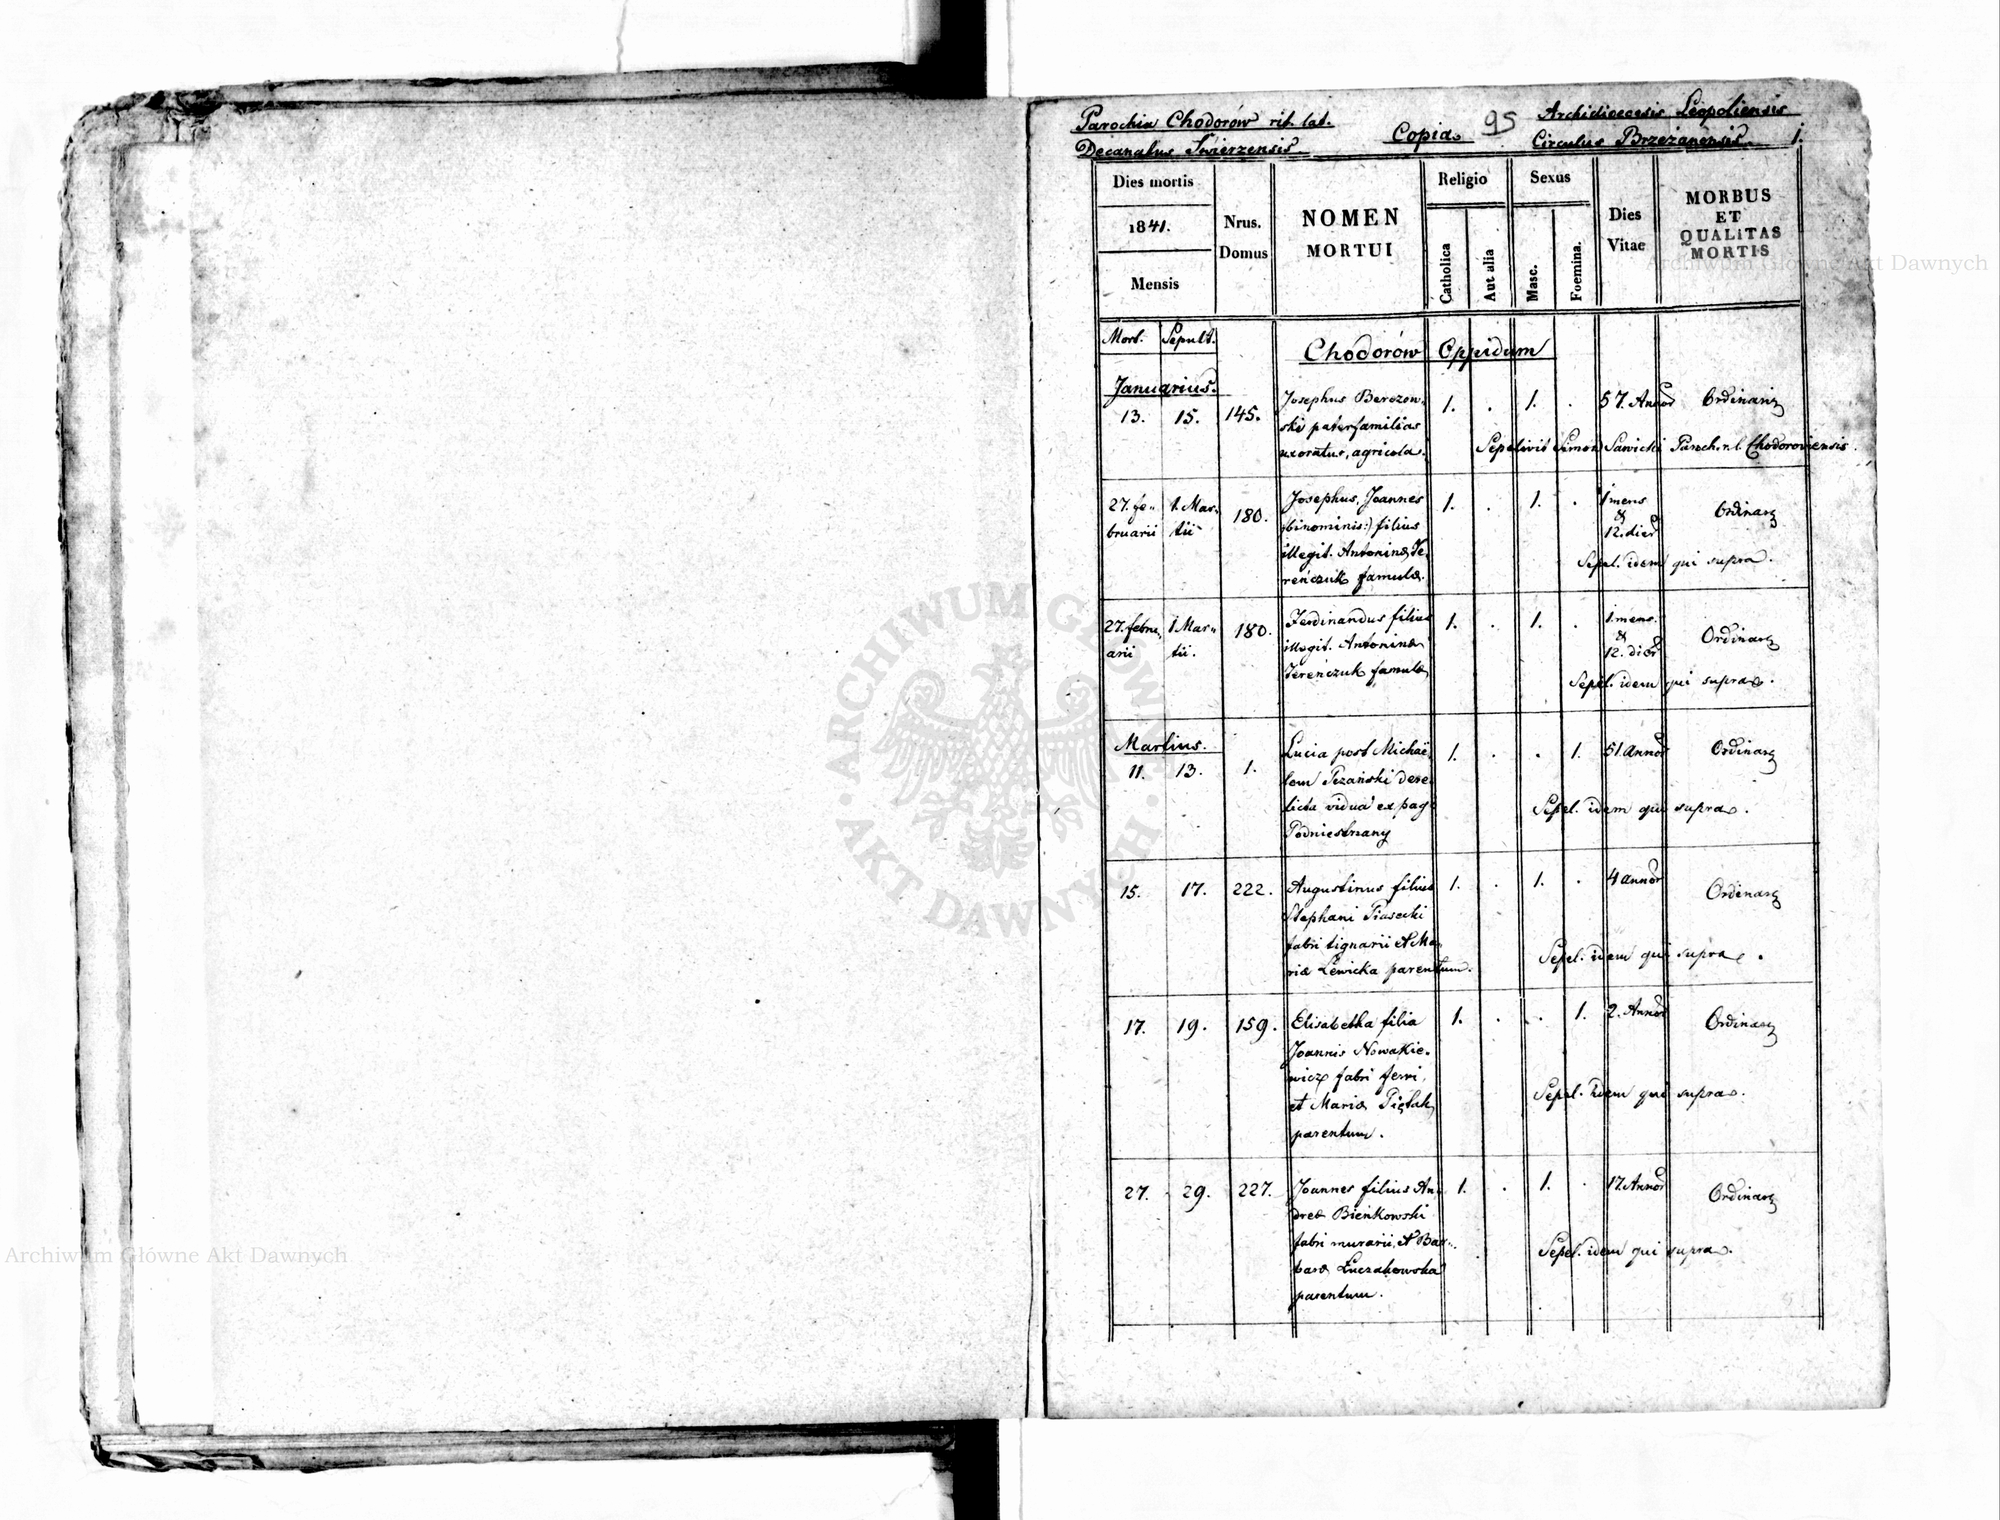 Parochia Chodorów rit. lat.
Decanatus Swierzensis
Copia
95
Archidioecesis Leopoliensis
Circulus Brzeżanensis
1.
Dies mortis
1841.
Mensis
Nrus.
Domus
NOMEN
MORTUI
Religio
Catholica
Aut alia
Sexus
Masc.
Foemina.
Dies
Vitae
MORBUS
ET
QUALITAS
MORTIS
Archiwum Główne Akt Dawnych
Mort. Sepult.
Chodorów Oppidum
Januarius.
13. 15. 145.
Josephus Berezow-
ski paterfamilias
uxoratus, agricola.
1. . 1. . 57. Annor Ordinaria
Sepelivit Simon Sawicki Paroch. r. l. Chodoroviensis.
27. fe-
bruarii
1. Mar-
tii
180.
Josephus, Joannes
binominis:) filius
illegit. Antoninæ Te-
reńczuk famulæ.
1. . 1. .
1 mens
&
12. dier
Ordinaria
Sepel. idem qui supra.
27. febru-
arii
1 Mar-
tii.
180.
Ferdinandus filius
illegit. Antoninæ
Tereńczuk famulæ
1. . 1. .
1. mens.
&
12. dier
Ordinaria
Sepel. idem qui supra.
Martius.
11. 13. 1.
Lucia post Michaë-
lem dere-
licta vidua ex pago
Podniestrzany
1. . . 1. 51 Annor Ordinaria
Sepel. idem qui supra.
15. 17. 222.
Augustinus filius
Stephani Piasecki
fabri lignarii et Ma-
riæ Lewicka parentum.
1. . 1. . 4 annor Ordinaria
Sepel. idem qui supra.
17. 19. 159.
Elisabetha filia
Joannis Nowakie-
wicz fabri ferri,
et Mariæ Piętak
parentum.
1. . . 1. 2. Annor Ordinaria
Sepel. idem qui supra.
27. 29. 227.
Joannes filius An-
dreæ Bieńkowski
fabri murarii, et Bar-
baræ Łuczakowska
parentum.
1. . 1. . 17 Annor Ordinaria
Sepel. idem qui supra.
ARCHIWUM GŁÓWNE
AKT DAWNYCH
Archiwum Główne Akt Dawnych